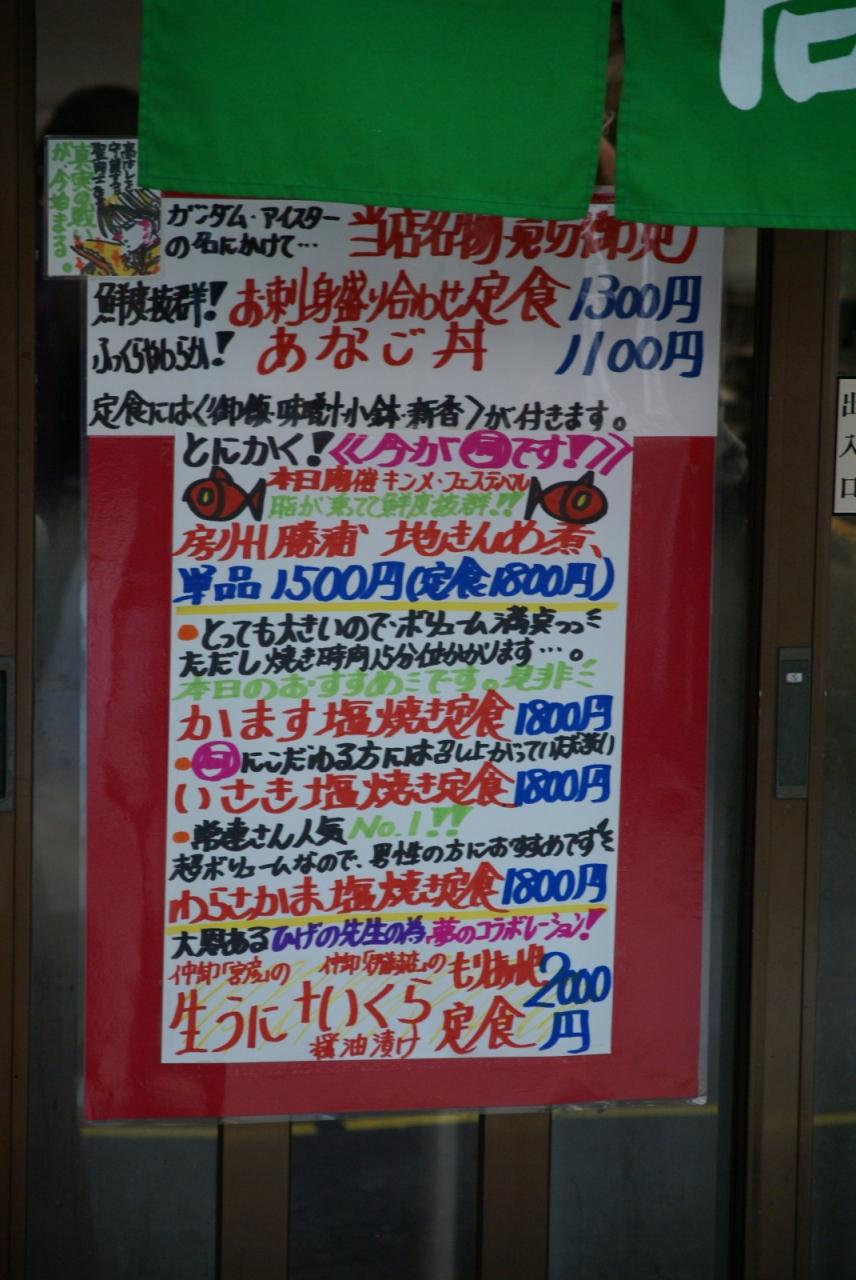 真実の戦い
が、今始まる。
ガンダム・アイスター
の名にかけて…
当店名物
鮮度抜群!お刺身盛り合わせ定食1300円
ふっくらやわらか!あなご丼 1100円
定食には〈御飯・味噌汁・小鉢・新香〉が付きます。
とにかく!《今が旬です!》
本日開催キンメ・フェスティバル
脂が乗ってて鮮度抜群!!
房州勝浦 地きんめ煮、
単品1500円(定食1800円)
とっても大きいのでボリューム満点っっ
ただし焼き時間15分位かかります…。
本日のおすすめです。是非
かます塩焼き定食1800円
旬にこだわる方には召し上がっていただきたい
いさき塩焼き定食1800円
常連さん人気No.1!!
超ボリュームなので、男性の方におすすめです
わらさかま塩焼き定食1800円
大恩あるひげの先生の為、夢のコラボレーション!
仲卸「宮彦」の 仲卸の もりあわせ
生うに+いくら 定食 2000円
醤油漬け
出入口